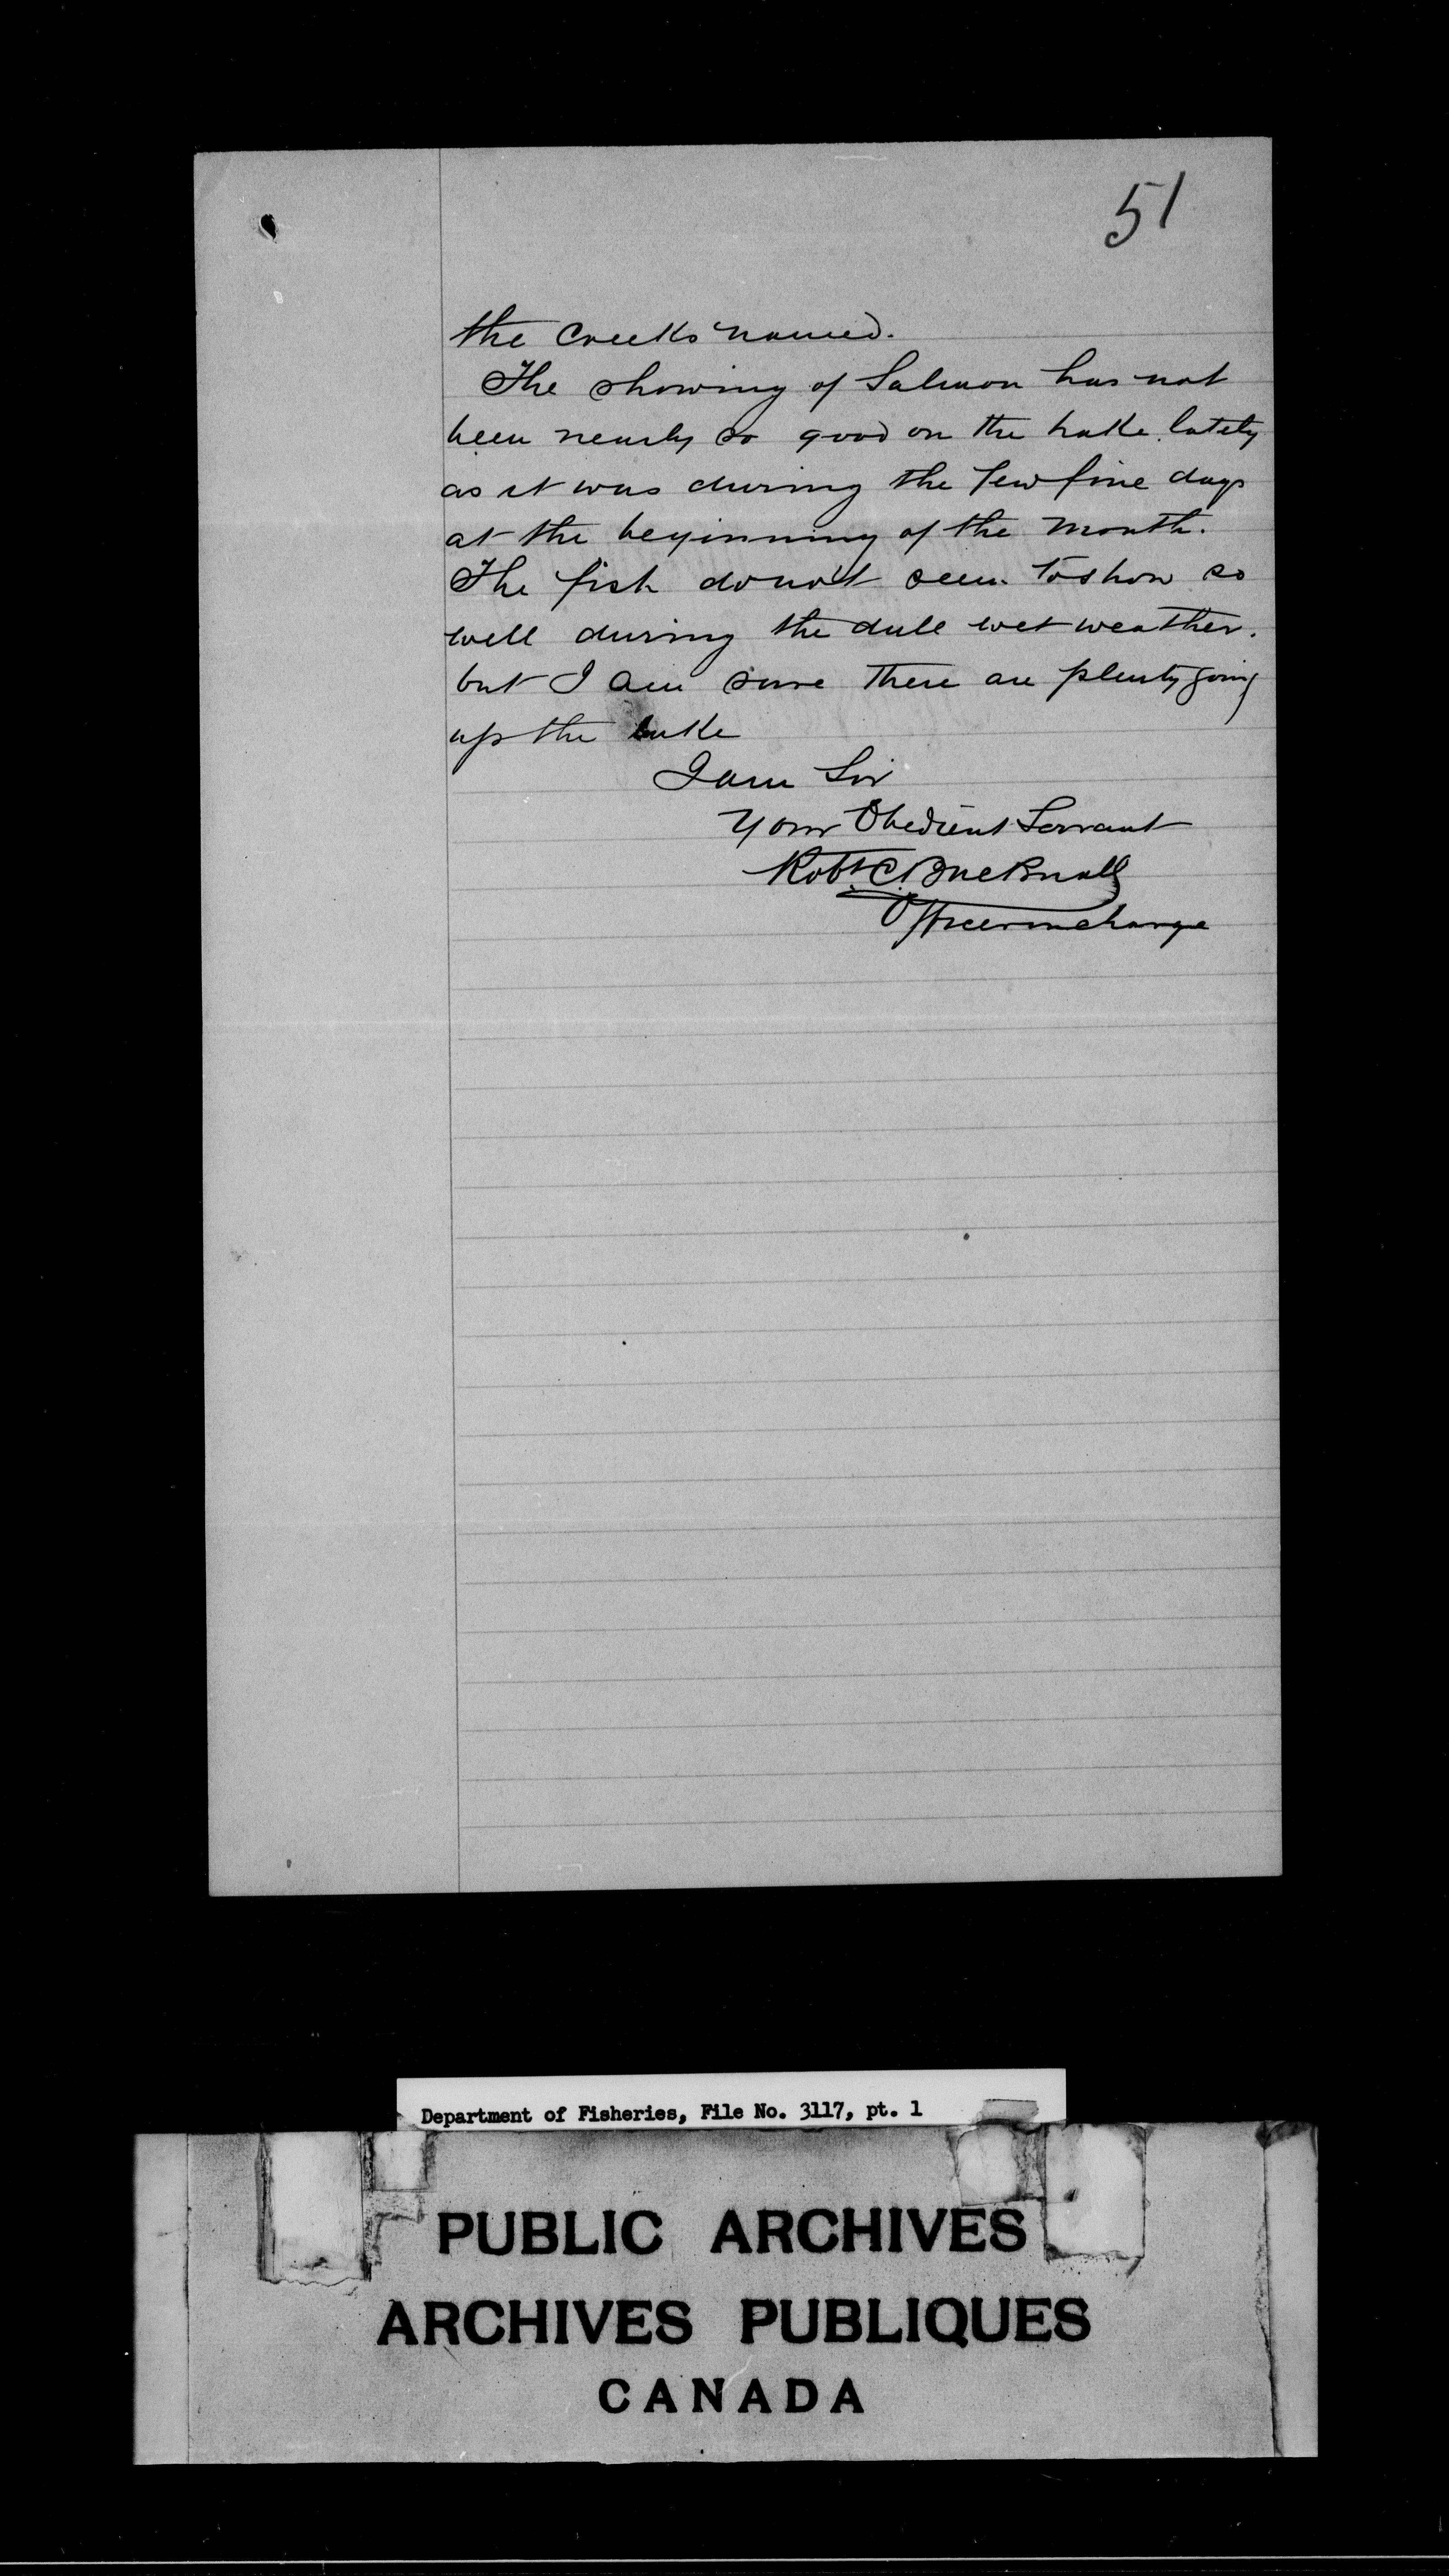 51
the Creeks named.
The showing of Salmon has not
been nearly so good on the Lake lately
as it was during the few fine days
at the beginning of the month.
The fish do not seem to show so
well during the dull wet weather.
but I am sure there are plenty going
up the Lake
I am Sir
Your Obedient Servant
Robt C.
Officer in charge
Department of Fisheries, File No. 3117, pt. 1
PUBLIC ARCHIVES
ARCHIVES PUBLIQUES
CANADA